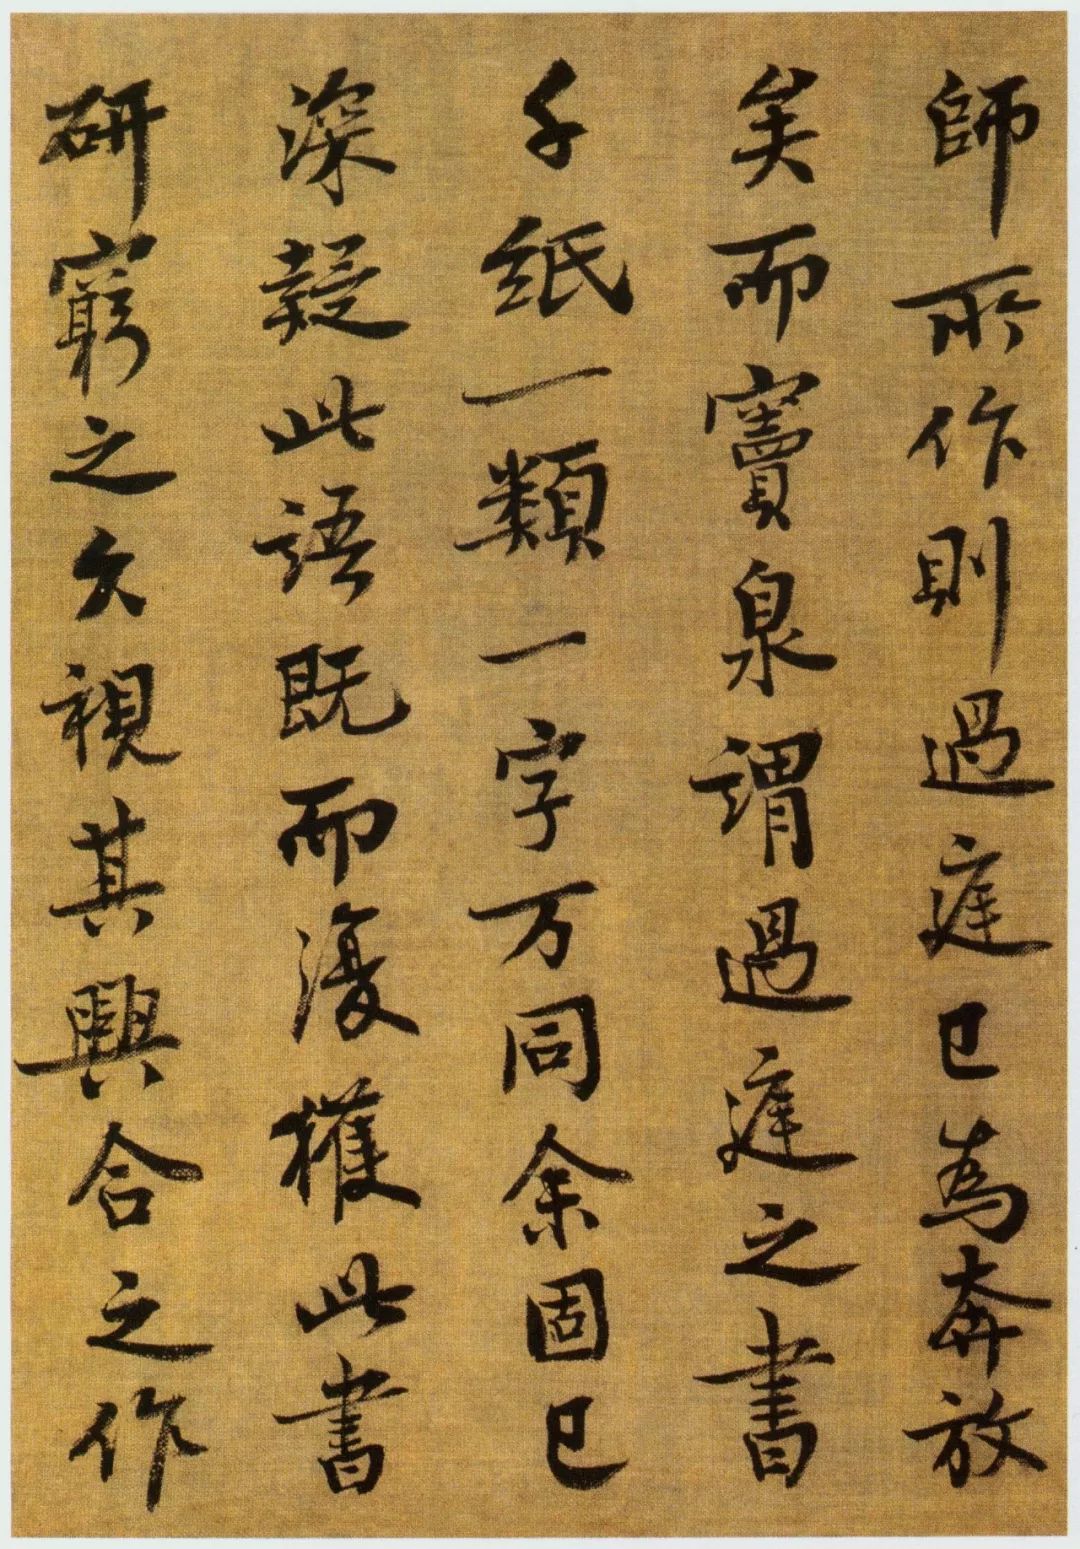 師所作則過庭已為奔放
矣而竇泉謂過庭之書
千紙一類一字万同余固已
深疑此語既而復獲此書
研窮之久視其興合之作